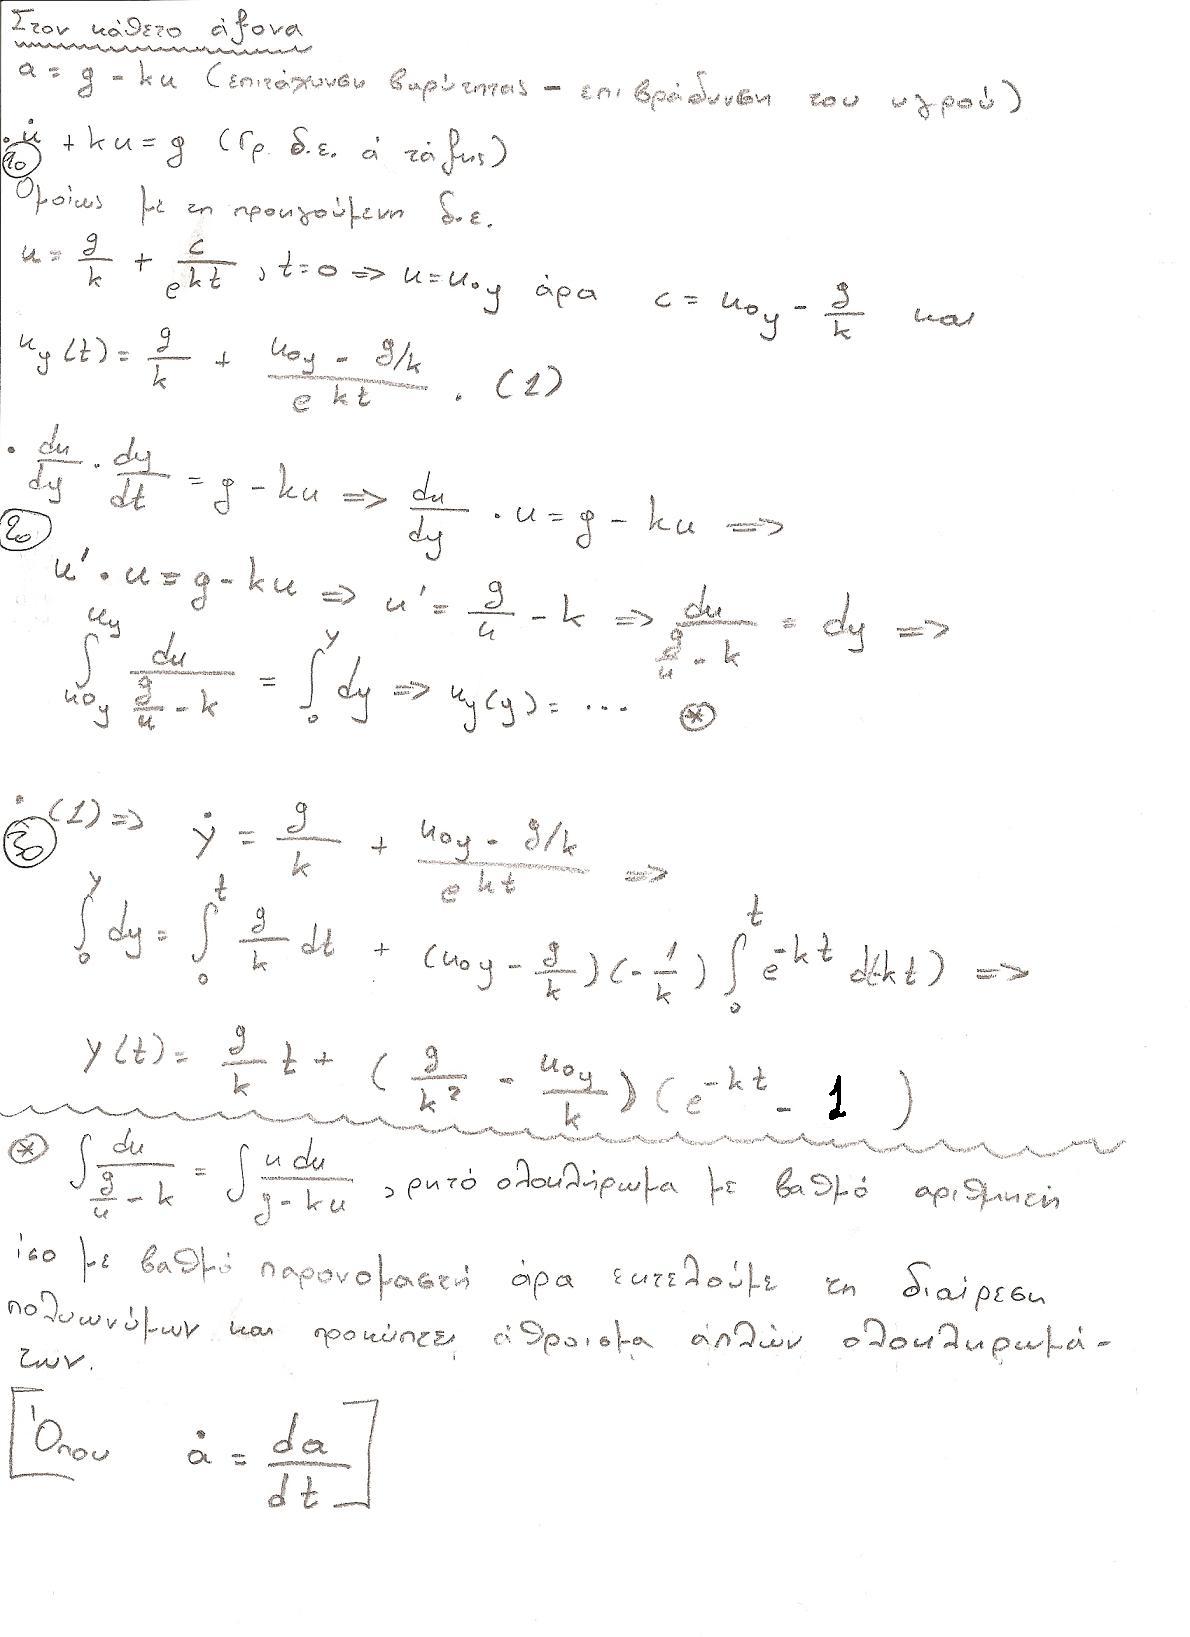 Στον κάθετο άξονα
a = g - ku (επιτάχυνση βαρύτητας - επιβράδυνση του υγρού)
1ο . u̇ + ku = g (Γρ. δ.ε. ά τάξης)
Ομοίως με τη προηγούμενη δ.ε.
u = g/k + c/e^{kt} , t=0 => u=u₀y άρα c = u₀y - g/k και
u_y(t) = g/k + (u₀y - g/k)/e^{kt} . (1)
2ο . du/dy · dy/dt = g - ku => du/dy · u = g - ku =>
u' · u = g - ku => u' = g/u - k => du/(g/u - k) = dy =>
∫_{u₀y}^{u_y} du/(g/u - k) = ∫_0^y dy => u_y(y) = ... (*)
3ο . (1) => ẏ = g/k + (u₀y - g/k)/e^{kt} =>
∫_0^y dy = ∫_0^t g/k dt + (u₀y - g/k)(-1/k) ∫_0^t e^{-kt} d(-kt) =>
y(t) = g/k t + (g/k² - u₀y/k)(e^{-kt} - 1)
(*) ∫ du/(g/u - k) = ∫ u du/(g - ku) , ρητό ολοκλήρωμα με βαθμό αριθμητή
ίσο με βαθμό παρονομαστή άρα εκτελούμε τη διαίρεση
πολυωνύμων και προκύπτει άθροισμα απλών ολοκληρωμά-
των.
[Όπου ȧ = da/dt]